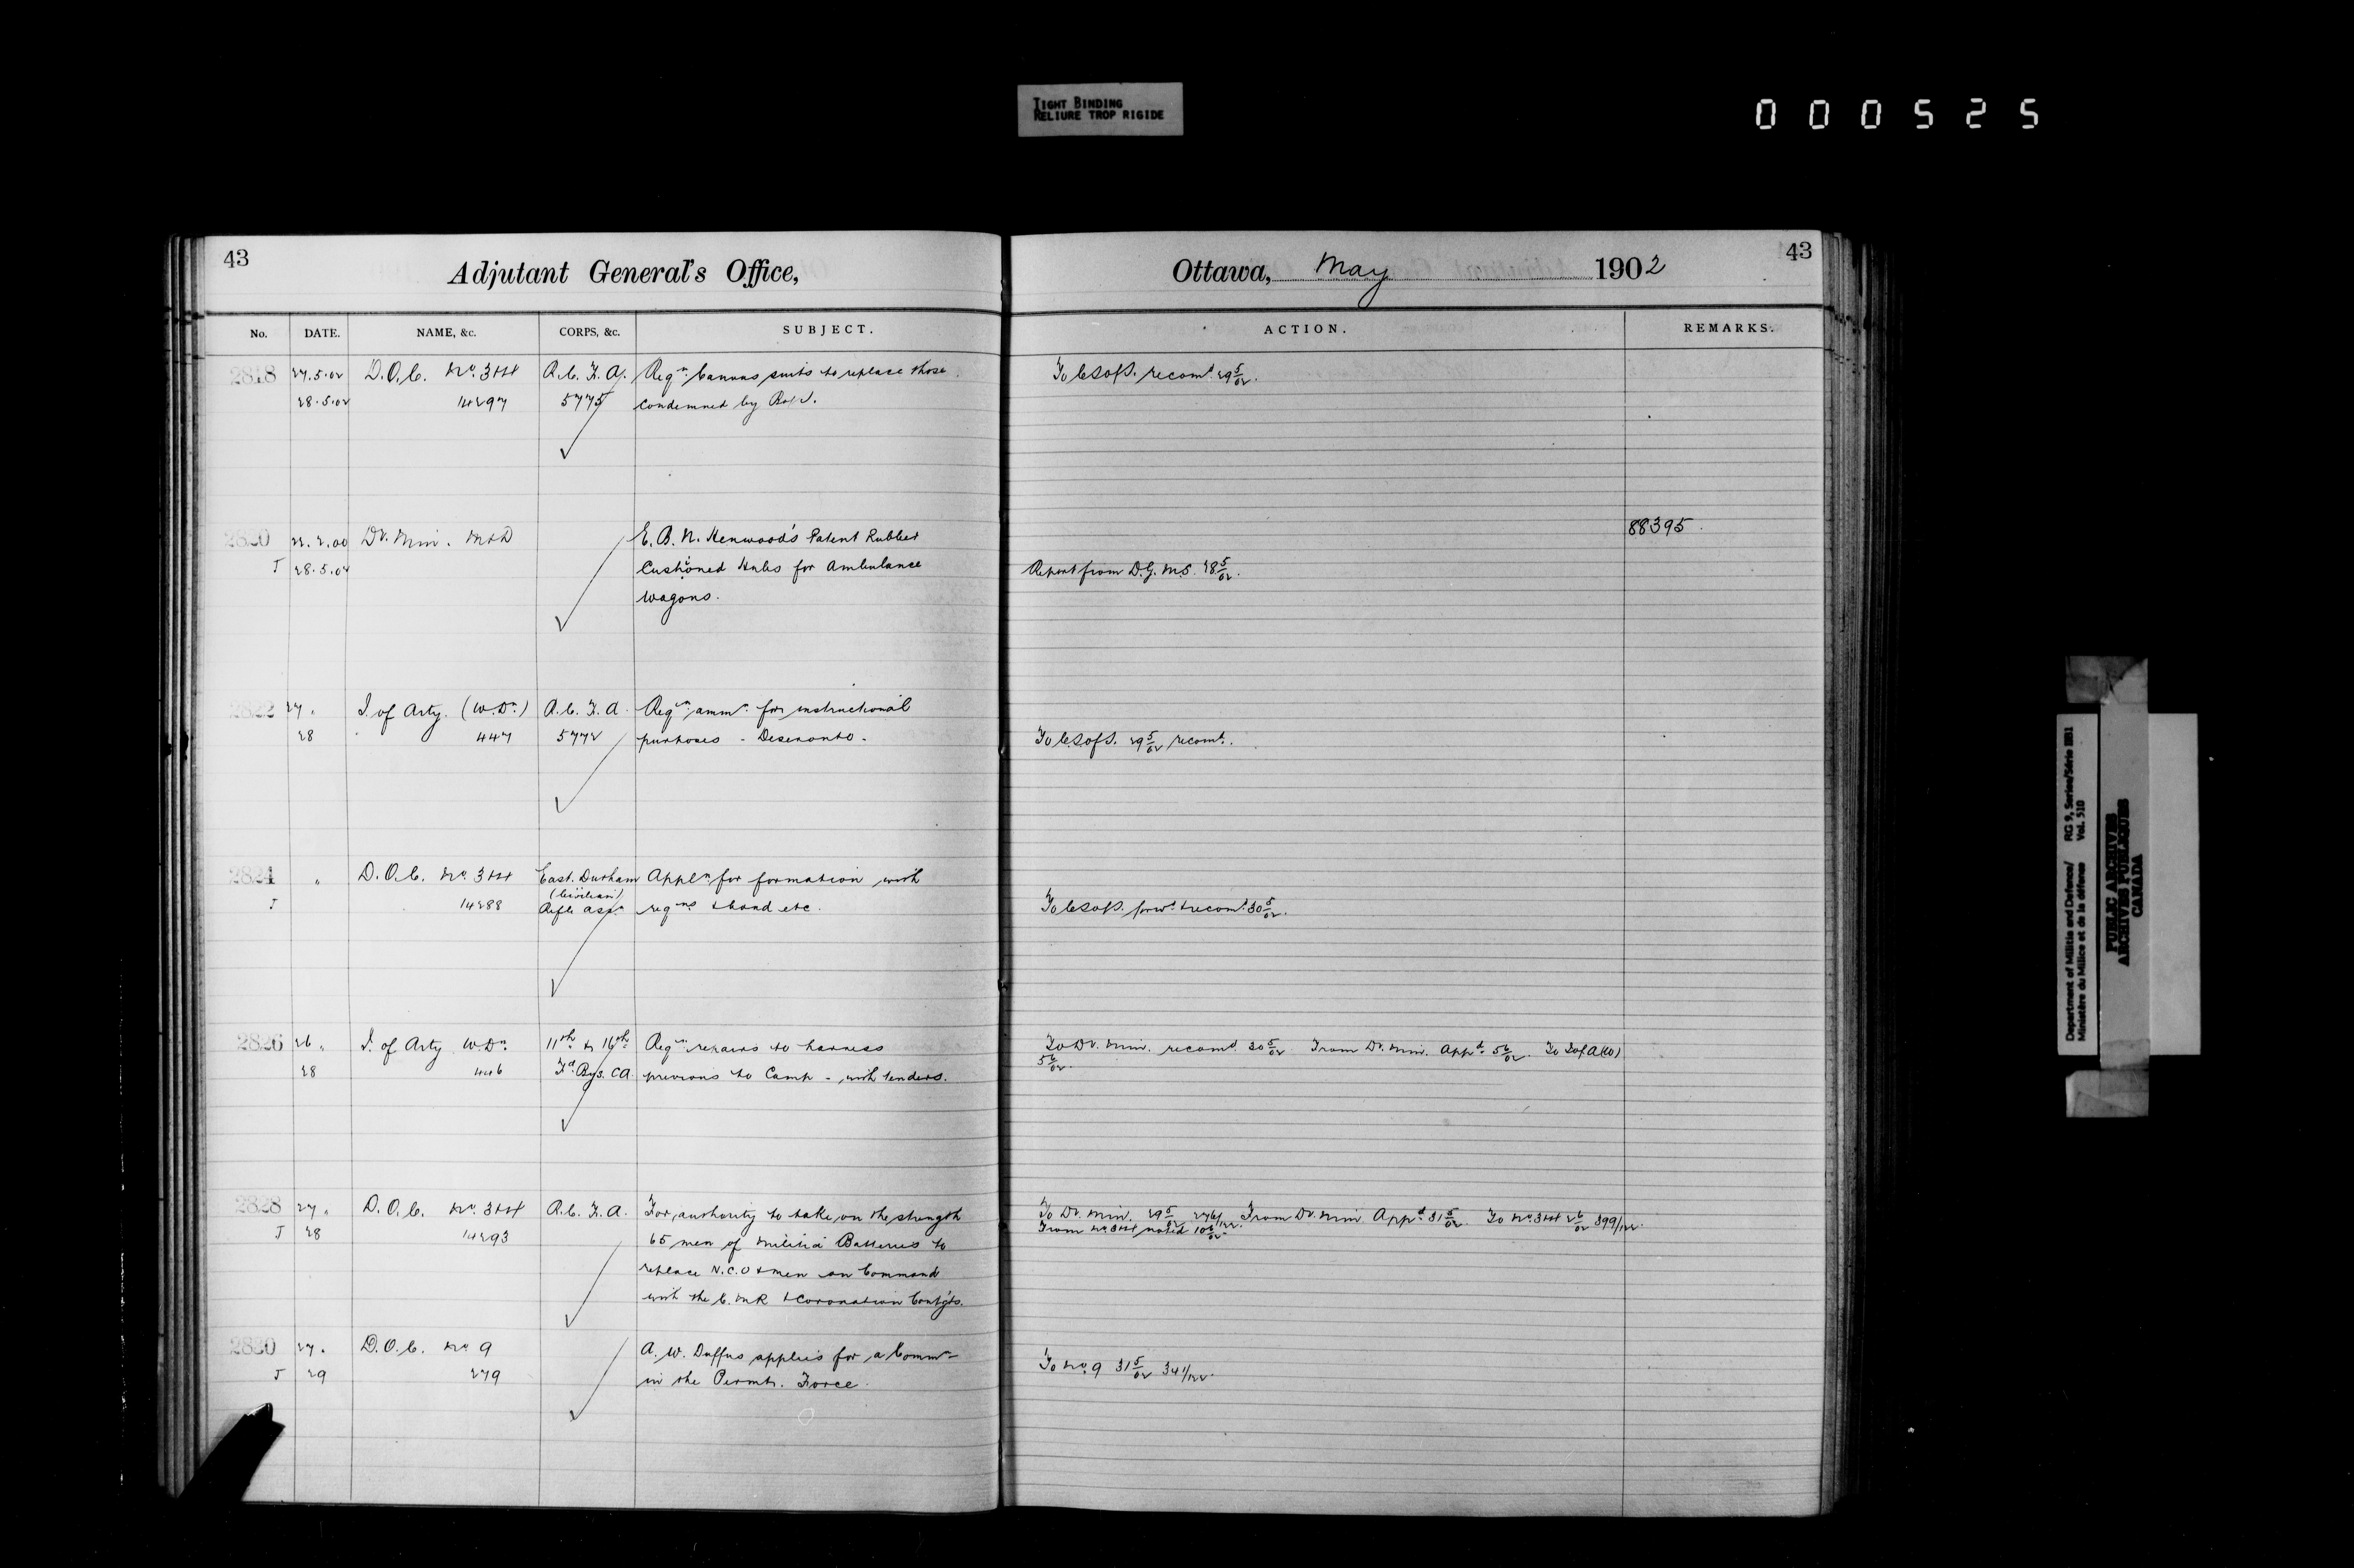 TIGHT BINDING
RELIURE TROP RIGIDE
000525
43
Adjutant General's Office,
No. DATE. NAME, &c. CORPS, &c. SUBJECT.
2818 27.5.02 D.O.C. No. 3+4 R.C.F.A. Reqn. Canvas suits to replace those
28.5.02 14297 5775 condemned by Bd.
2820 22.2.00 Dy. Min. M+D E. B. N. Henwood's Patent Rubber
J 28.5.02 Cushioned Hubs for Ambulance
Wagons.
2822 27 " I. of Arty. (W.Dn.) R.C.F.A. Reqn. ammn. for instructional
28 447 5772 purposes - Deseronto.
2824 " D.O.C. No. 3+4 East. Durham Appln. for formation with
(Civilian)
J 14288 Rifle Assn. reqns. + bond etc.
2826 26 " I. of Arty W.Dn. 11th & 16th Reqn. repairs to harness
28 446 Fd. Bys. CA. previous to Camp - with tenders.
2828 27 " D.O.C. No. 3+4 R.C.F.A. For authority to take on the strength
J 28 14293 65 men of Militia Batteries to
replace N.C.O + men on Command
with the C.M.R + Coronation Contgts.
2830 27 " D.O.C. No 9 A. W. Duffus applies for a Commn.
J 29 279 in the Permt. Force.
43
Ottawa, May 1902
ACTION. REMARKS.
To CSofS. recomd. 29 5/02.
88395.
Report from D.G.M.S. 28 5/02.
To CSofS. 29 5/02 recomd.
To CSofS. forwd. + recomd. 30 5/02.
To Dy. Min. recomd. 30 5/02 From Dy. Min. Appd. 5 6/02. To IofA(W)
5 6/02.
To Dy. Min. 29 5/02 From Dy. Min. Appd. 31 5/02. To No. 3+4 2 6/02 399/122.
From No. 3+4 noted 10 6/02.
To No. 9 31 5/02 341/122.
Department of Militia and Defence/ RG 9, Series/Série IIB1
Ministère du Milice et de la défence Vol. 510
PUBLIC ARCHIVES
ARCHIVES PUBLIQUES
CANADA